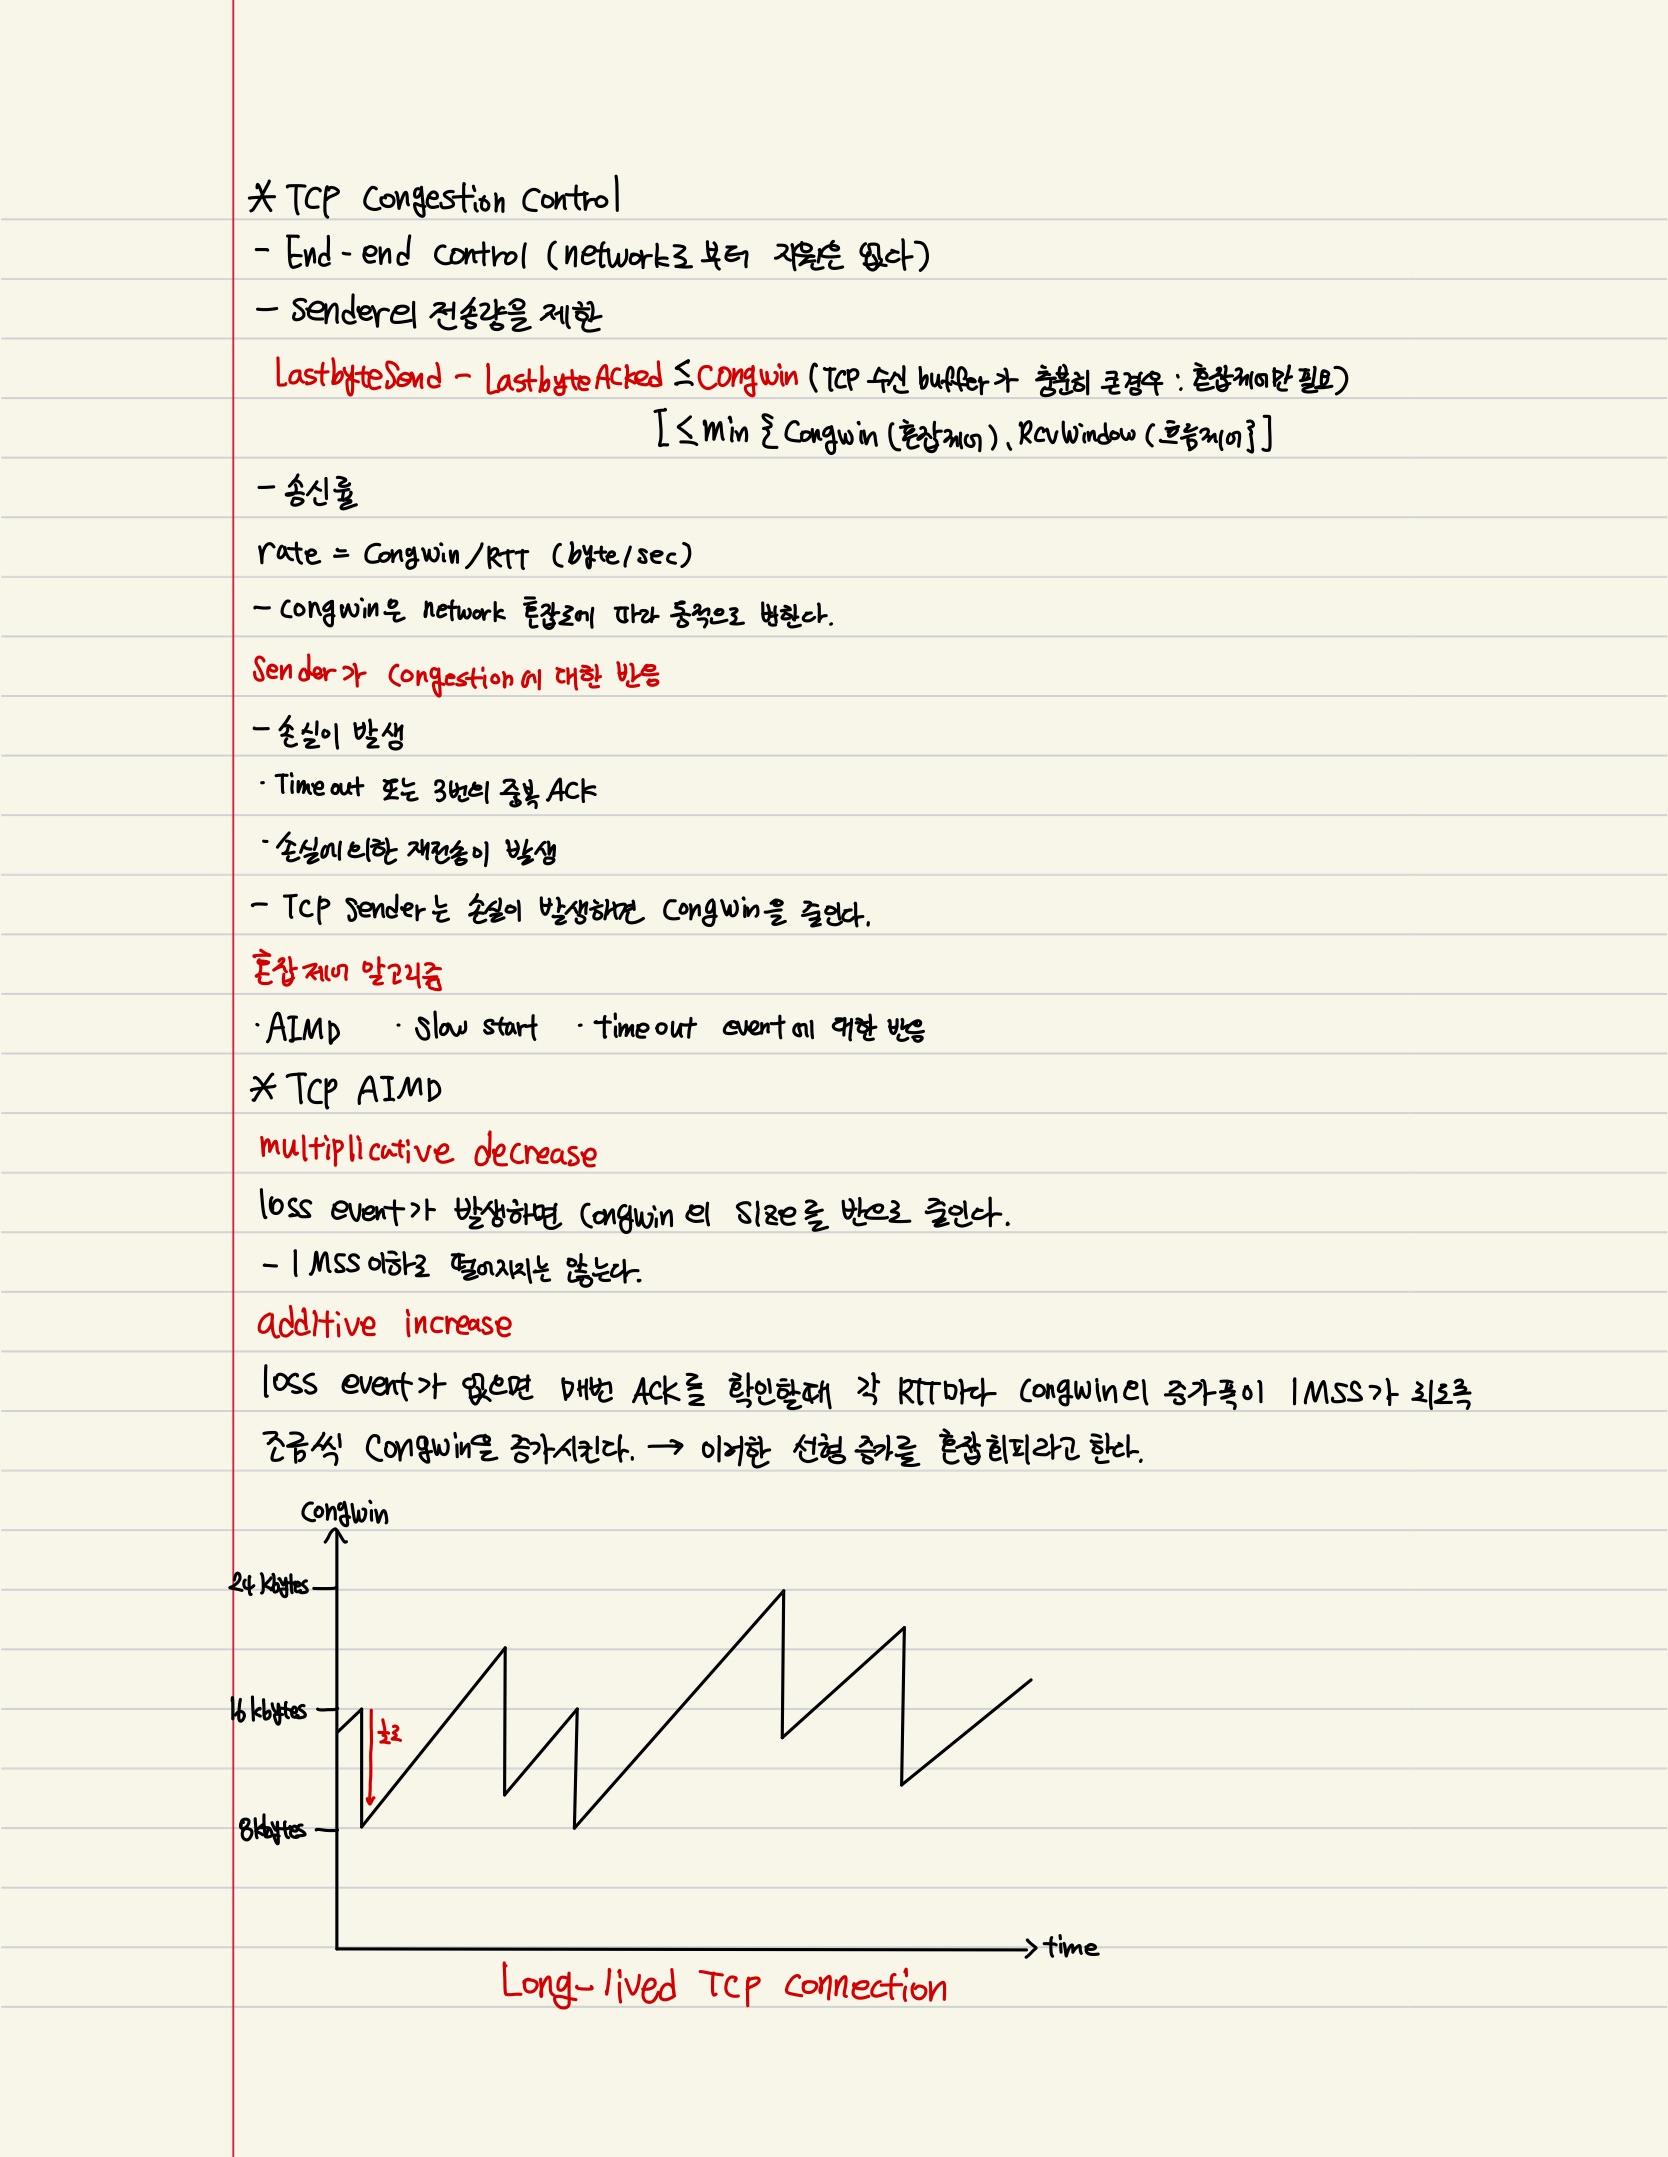 * TCP Congestion Control
- End-end control (network로 부터 지원은 없다)
- Sender의 전송량을 제한
LastbyteSend - LastbyteAcked ≤ Congwin (TCP 수신 buffer가 충분히 큰경우 : 혼잡제어만 필요)
[≤ min {Congwin (혼잡제어), RcvWindow (흐름제어}]
- 송신률
rate = Congwin/RTT (byte/sec)
- Congwin은 network 혼잡로에 따라 동적으로 변한다.
Sender가 Congestion에 대한 반응
- 손실이 발생
· Timeout 또는 3번의 중복 ACK
· 손실에 의한 재전송이 발생
- TCP Sender는 손실이 발생하면 Congwin을 줄인다.
혼잡 제어 알고리즘
· AIMD · Slow start · timeout event에 대한 반응
* TCP AIMD
multiplicative decrease
loss event가 발생하면 Congwin의 Size를 반으로 줄인다.
- 1 MSS 이하로 떨어지지는 않는다.
additive increase
loss event가 없으면 매번 ACK를 확인할때 각 RTT마다 Congwin의 증가폭이 1 MSS가 되도록
조금씩 Congwin을 증가시킨다. → 이러한 선형 증가를 혼잡회피라고 한다.
Congwin
24 Kbytes
16 kbytes
½로
8kbytes
time
Long-lived TCP connection